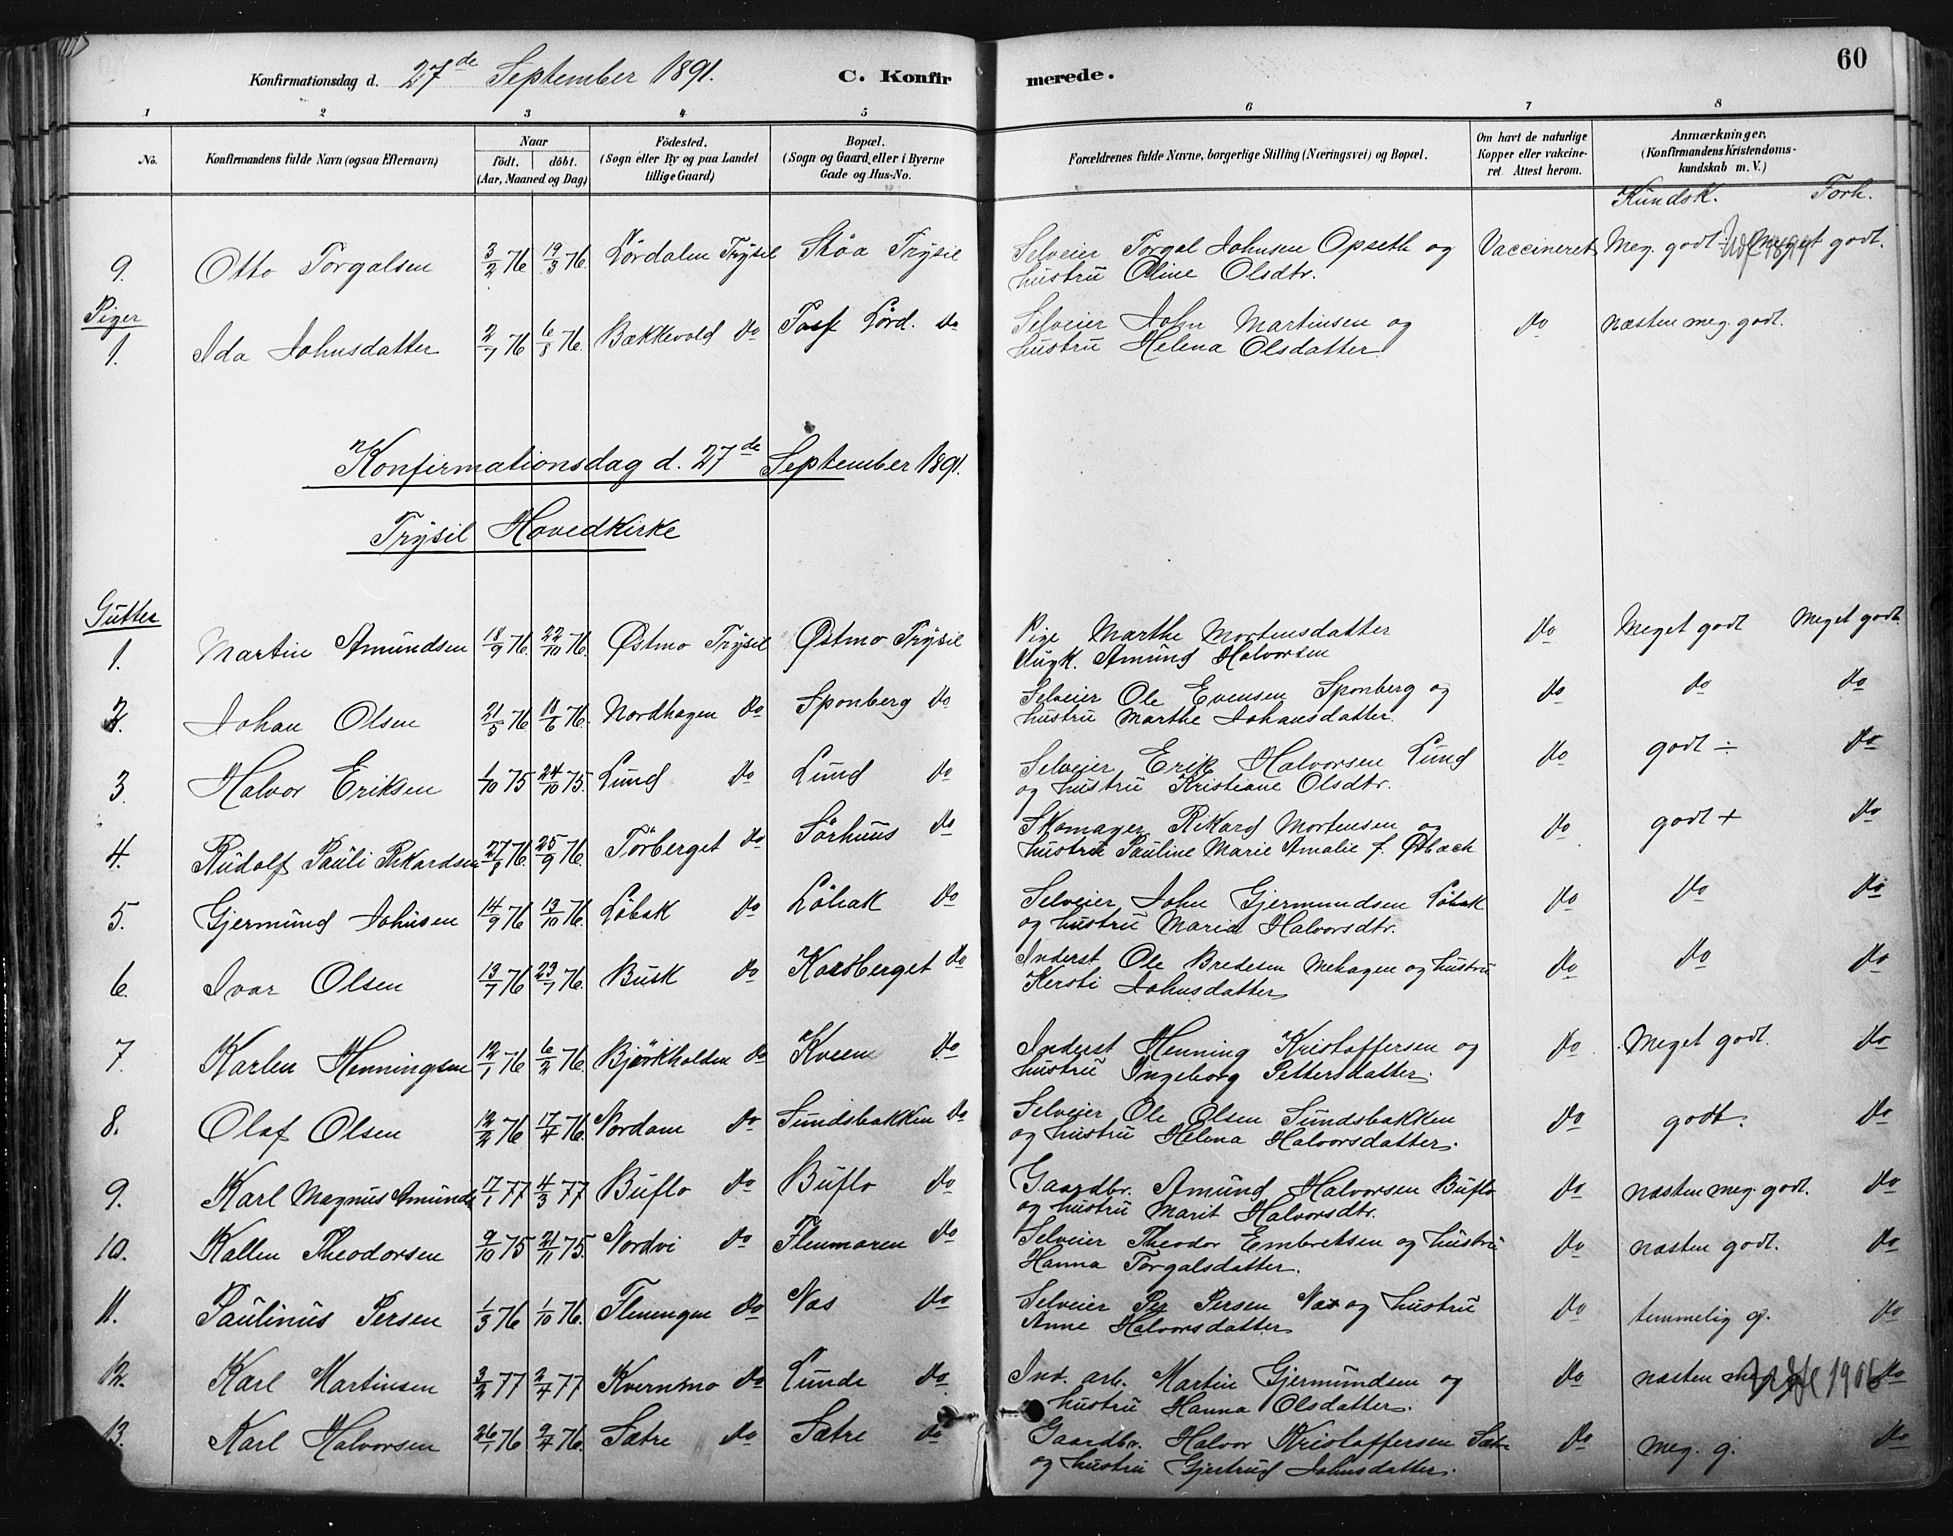 60
Konfirmationsdag d. 27de September 1891. C. Konfirmerede.
1 2 3 4 5 6 7 8
No. Konfirmandens fulde Navn (ogsaa Efternavn) Naar født, døbt. (Aar, Maaned og Dag) Fødested. (Sogn eller By og paa Landet tillige Gaard) Bopæl. (Sogn og Gaard, eller i Byerne Gade og Hus-No. Forældrenes fulde Navne, borgerlige Stilling (Næringsvei) og Bopæl. Om havt de naturlige Kopper eller vakcineret Attest herom. Anmærkninger. (Konfirmandens Kristendomskundskab m. V.)
Kundsk. Forh.
9. Otto Torgalsen 3/2 76 19/3 76 Lördalen Trysil Støa Trysil Selveier Torgal Johnsen Opseth og Vaccineret Meg. godt ÷ meget godt.
hustru Oline Olsdtr.
Piger
1. Ida Johnsdatter 2/7 76 6/8 76. Bækkevold do Lörd. do Selveier John Martinsen og do næsten meg. godt.
hustru Helena Olsdatter
Konfirmationsdag d. 27de September 1891.
Trysil Hovedkirke
Gutter
1. Martin Amundsen 18/9 76. 22/10 76. Østmo Trysil Østmo Trysil Pige Marthe Mortensdatter do Meget godt Meget godt.
Ungk. Amund Halvorsen
2. Johan Olsen 21/5 76 18/6 76. Nordhagen do Sponberg do Selveier Ole Evensen Sponberg og do do do
hustru Marthe Johansdatter.
3. Halvor Eriksen 1/10 75 24/10 75. Lund do Lund do Selveier Erik Halvorsen Lund do godt ÷ do
og hustru Kristiane Olsdtr.
4. Rudolf Pauli Rikardsen 27/8 76. 25/9 76. Törberget do Sörhuus do Skomager Rikard Mortensen og do godt + do
hustru Pauline Marie Amalie f. Ødbæch
5. Gjermund Johnsen 14/9 76 13/10 76. Löbak do Löbak do Selveier John Gjermundsen Löbak do do do
og hustru Maria Halvorsdtr.
6. Ivar Olsen 13/7 76 23/7 76. Busk do Korsberget do Inderst Ole Bredesen Mehagen og hustru do do do
Kersti Johnsdatter
7. Karlen Henningsen 12/1 76 6/2 76. Björkholden do Kveen do Inderst Henning Kristoffersen og do Meget godt. do
hustru Ingeborg Pettersdatter.
8. Olaf Olsen 12/2 76 17/4 76. Nordam do Sundsbakken do Selveier Ole Olsen Sundsbakken do godt. do
og hustru Helena Halvorsdatter.
9. Karl Magnus Amunds 17/1 77 4/3 77 Buflo do Buflo do Gaardbr. Amund Halvorsen Buflo do næsten meg. godt. do
og hustru Marit Halvorsdtr.
10. Kallen Theodorsen 9/10 75 21/11 75. Nordvi do Flenmoren do Selveier Theodor Embretsen og hustru do næsten godt. do
Hanna Torgalsdatter.
11. Paulinus Persen 1/3 76 1/10 76. Flermgen do Næs do Selveier Per Persen Næs og hustru do temmelig g. do
Anne Halvorsdatter
12. Karl Martinsen 3/2 77 2/4 77 Kvernmo do Lunde do Ind. arb. Martin Gjermundsen og do næsten meg. 1906 do
hustru Hanna Olsdatter.
13. Karl Halvorsen 26/1 76 2/4 76. Sætre do Sætre do Gaardbr. Halvor Kristoffersen Sætre do meg. g. do
og hustru Gjertrud Johnsdatter.